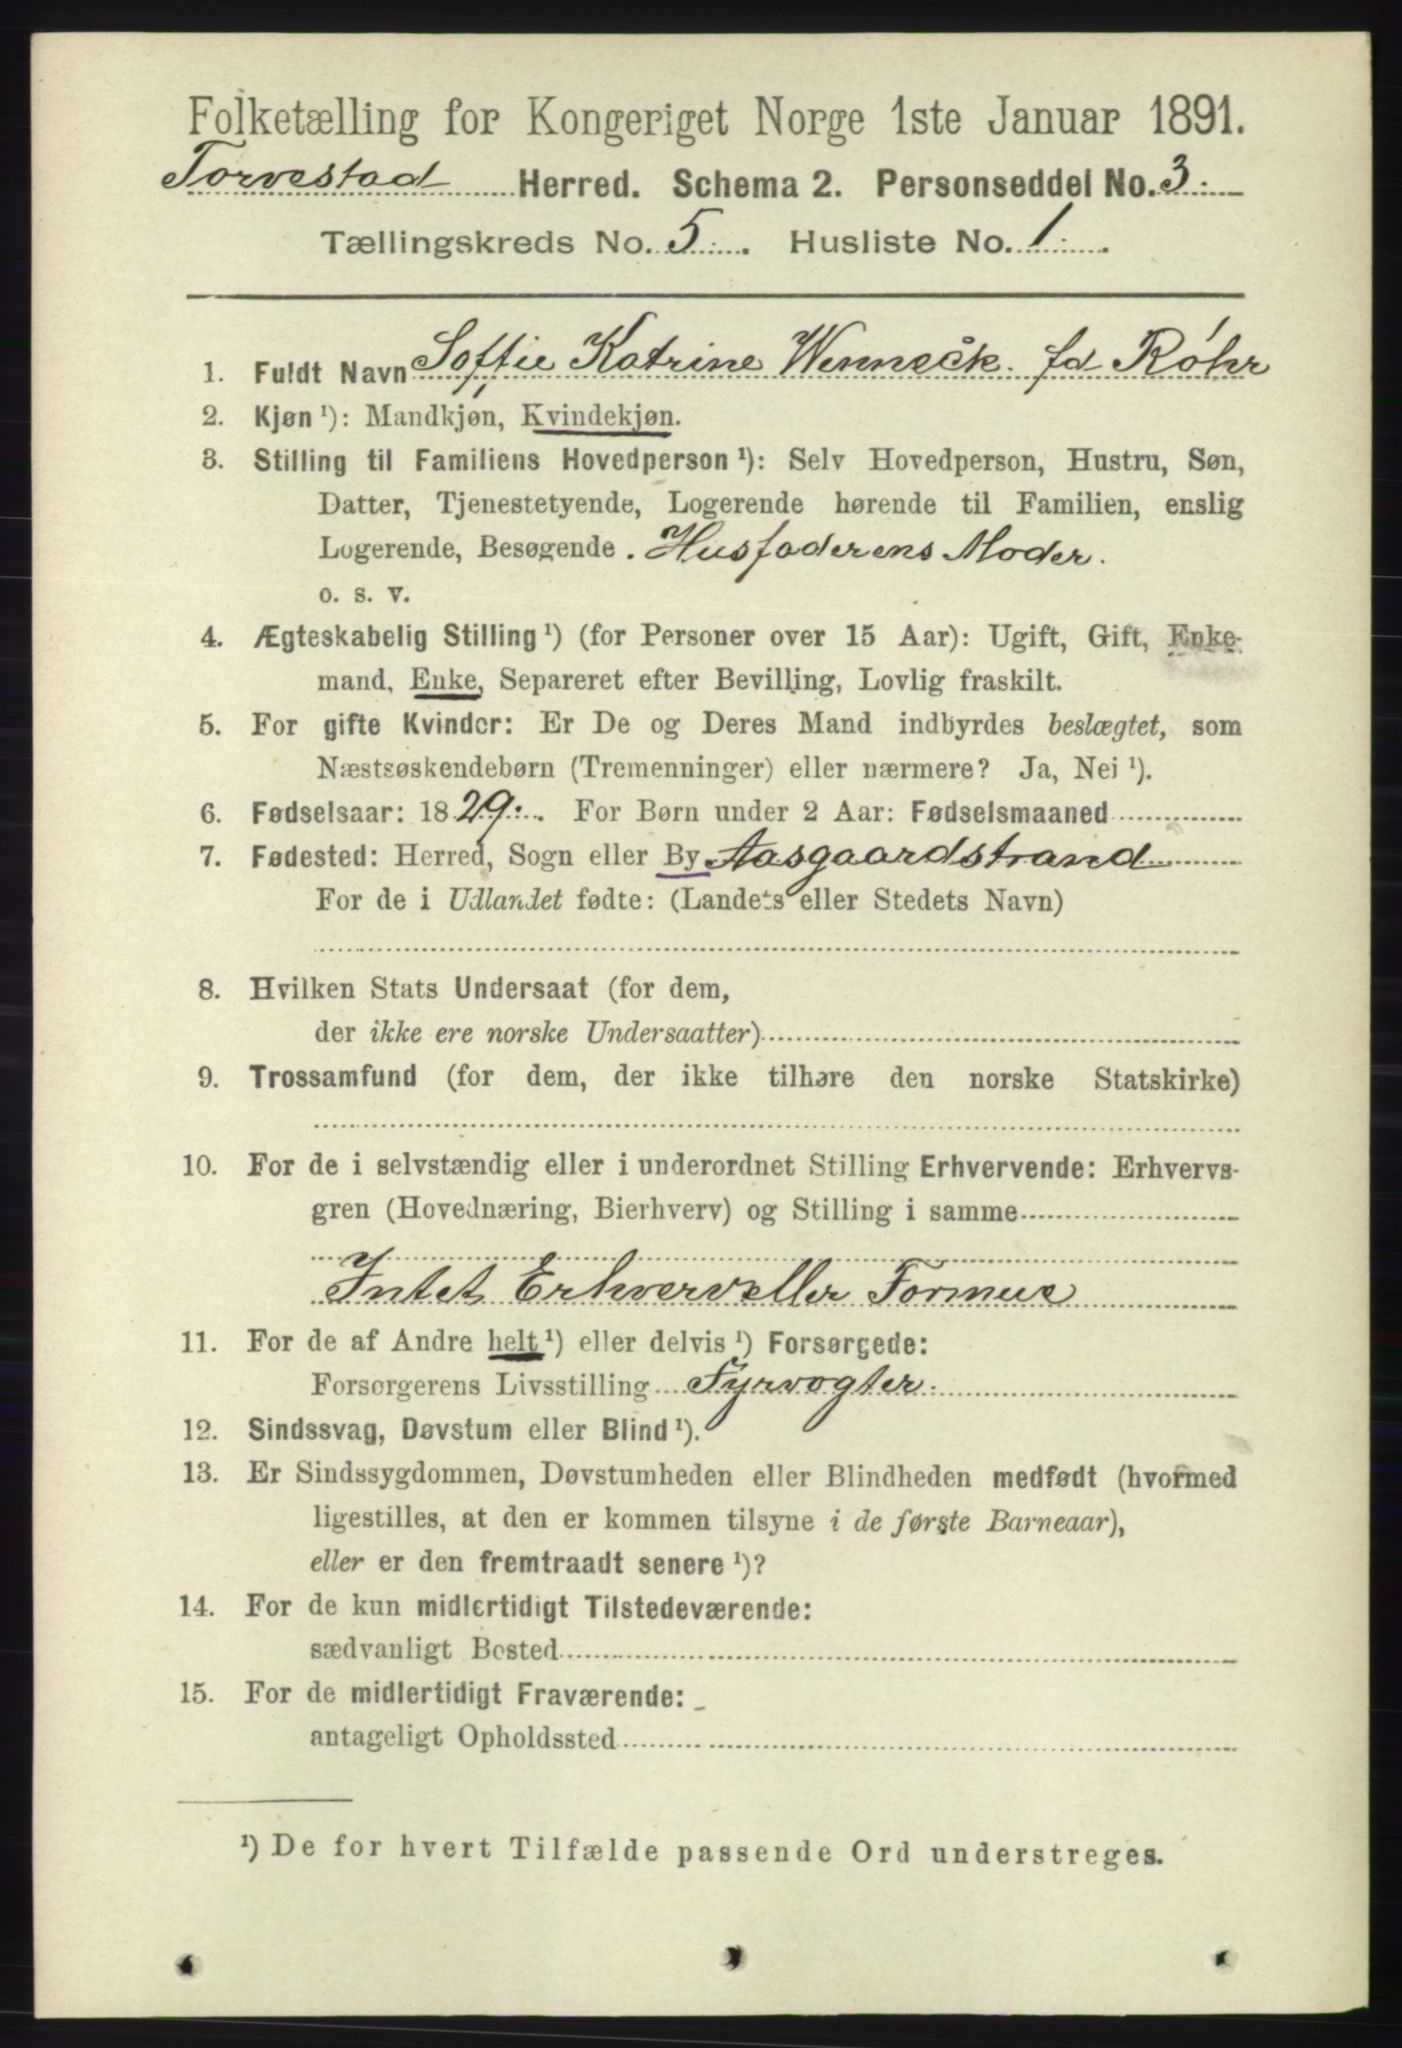 Folketælling for Kongeriget Norge 1ste Januar 1891.
Torvestad Herred. Schema 2. Personseddel No. 3.
Tællingskreds No. 5. Husliste No. 1.
1. Fuldt Navn Soffie Katrine Wenneck. fd Røhr
2. Kjøn ¹): Mandkjøn, Kvindekjøn.
3. Stilling til Familiens Hovedperson ¹): Selv Hovedperson, Hustru, Søn,
Datter, Tjenestetyende, Logerende hørende til Familien, enslig
Logerende, Besøgende. Husfaderens Moder.
o. s. v.
4. Ægteskabelig Stilling ¹) (for Personer over 15 Aar): Ugift, Gift, Enke-
mand, Enke, Separeret efter Bevilling, Lovlig fraskilt.
5. For gifte Kvinder: Er De og Deres Mand indbyrdes beslægtet, som
Næstsøskendebørn (Tremenninger) eller nærmere? Ja, Nei ¹).
6. Fødselsaar: 1829. For Børn under 2 Aar: Fødselsmaaned
7. Fødested: Herred, Sogn eller By Aasgaardstrand
For de i Udlandet fødte: (Landets eller Stedets Navn)
8. Hvilken Stats Undersaat (for dem,
der ikke ere norske Undersaatter)
9. Trossamfund (for dem, der ikke tilhøre den norske Statskirke)
10. For de i selvstændig eller i underordnet Stilling Erhvervende: Erhvervs-
gren (Hovednæring, Bierhverv) og Stilling i samme
Intet Erhverv eller Formue
11. For de af Andre helt ¹) eller delvis ¹) Forsørgede:
Forsørgerens Livsstilling Fyrvogter.
12. Sindssvag, Døvstum eller Blind ¹).
13. Er Sindssygdommen, Døvstumheden eller Blindheden medfødt (hvormed
ligestilles, at den er kommen tilsyne i de første Barneaar),
eller er den fremtraadt senere ¹)?
14. For de kun midlertidigt Tilstedeværende:
sædvanligt Bosted
15. For de midlertidigt Fraværende:
antageligt Opholdssted
¹) De for hvert Tilfælde passende Ord understreges.